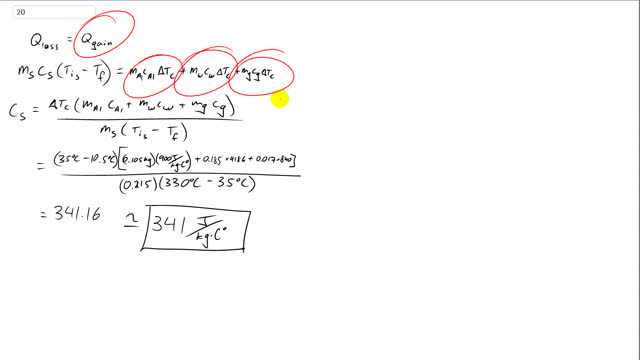 20
Q_loss = Q_gain
m_s c_s (T_is - T_f) = m_Al c_Al ΔT_c + m_w c_w ΔT_c + m_g c_g ΔT_c
c_s = ΔT_c (m_Al c_Al + m_w c_w + m_g c_g)
m_s (T_is - T_f)
= (35°C - 10.5°C)[(0.105kg)(900 J/kg C°) + 0.185 • 4186 + 0.017 • 840]
(0.215)(330°C - 35°C)
= 341.16 ≃ 341 J/kg·C°